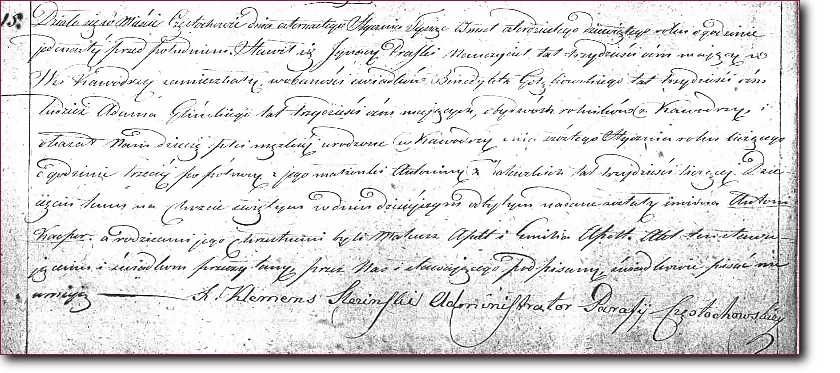 15. Działo się w Mieście Częstochowie dnia czternastego Stycznia Tysiąc Ośmset czterdziestego dziewiątego roku o godzinie
jedenastej przed południem. Stawił się Ignacy Nauczyciel lat trzydzieści ośm mający w
Wsi Kawodrzy zamieszkały, w obecności świadków Benedykta lat trzydzieści ośm
tudzież Adama Glińskiego lat trzydzieści ośm mających, obydwóch rolników z Kawodrzy, i
okazał Nam dziecię płci męzkiej urodzone w Kawodrzy dnia szóstego Stycznia roku bieżącego
o godzinie trzeciej po północy z jego małżonki Antoniny z lat trzydzieści liczącej. Dzie-
cięciu temu na Chrzcie świętym w dniu dzisiejszym odbytym nadane zostały imiona Antoni
Kacper. a rodzicami jego chrzestnemi byli Mateusz Apelt i Emilia Apelt. Akt ten stawa-
jącemu i świadkom przeczytany, przez Nas i stawającego podpisany, świadkowie pisać nie
umieją X. Klemens Administrator Parafij Częstochowskiej